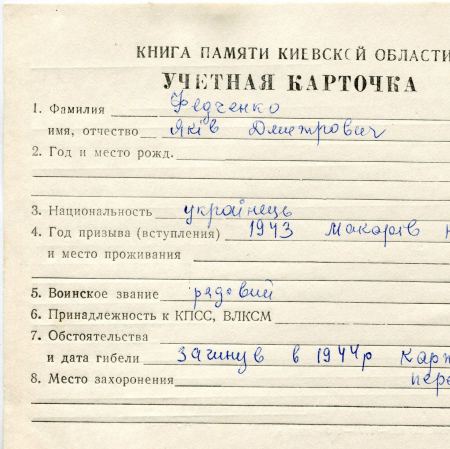 КНИГА ПАМЯТИ КИЕВСКОЙ ОБЛАСТИ
УЧЕТНАЯ КАРТОЧКА
1. Фамилия Федченко
имя, отчество Яків Дмитрович
2. Год и место рожд.
3. Национальность українець
4. Год призыва (вступления) 1943 Макарів
и место проживания
5. Воинское звание рядовий
6. Принадлежность к КПСС, ВЛКСМ
7. Обстоятельства
и дата гибели загинув в 1944р
8. Место захоронения